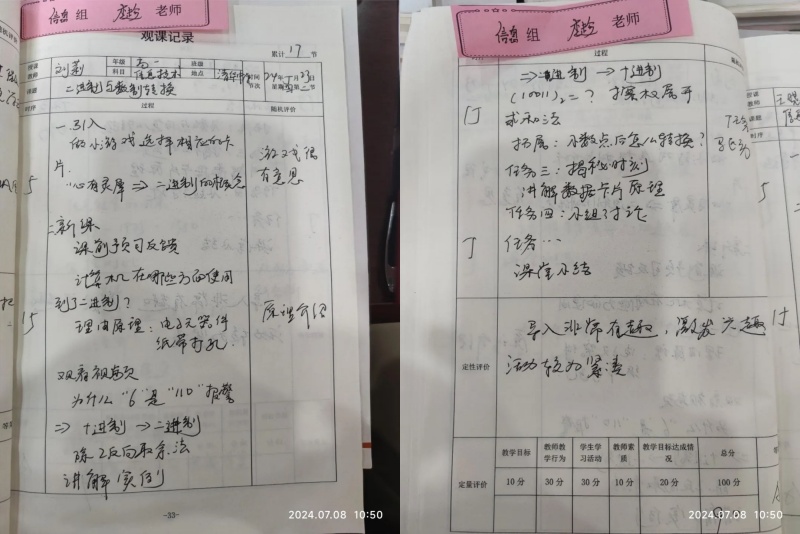 信息 组 老师
观课记录
累计 17 节
教师 年级 高一 班级 时间 24年1月23日
科目 信息技术 地点 节次
课题 二进制与数制转换
时序 过程 随机评价
一.引入
的小游戏选择相应的卡
片. 游戏很
5 "心有灵犀 ⇒ 二进制的概念 有意思
二.新课
课前预习反馈
计算机在哪些方面使用
到了二进制?
15 理由原理:电子元器件 原理介绍
纸带打孔
观看视频
为什么"6"是"110"报警
⇒ 十进制 → 二进制
除2反向取余法
讲解实例
-33-
2024.07.08 10:50
信息 组 老师
过程
⇒ 二进制 → 十进制
(10011)₂=? 按权展开
15 求和法
拓展:小数点后怎么转换?
任务三:揭秘时刻
讲解数据卡片原理
任务四:小组讨论
5 任务…
课堂小结
定性评价
导入非常有趣,激发兴趣
活动较为紧凑
定量评价
教学目标 教师教学行为 学生学习活动 教师素质 教学目标达成情况 总分
10分 30分 30分 10分 20分 100分
2024.07.08 10:50